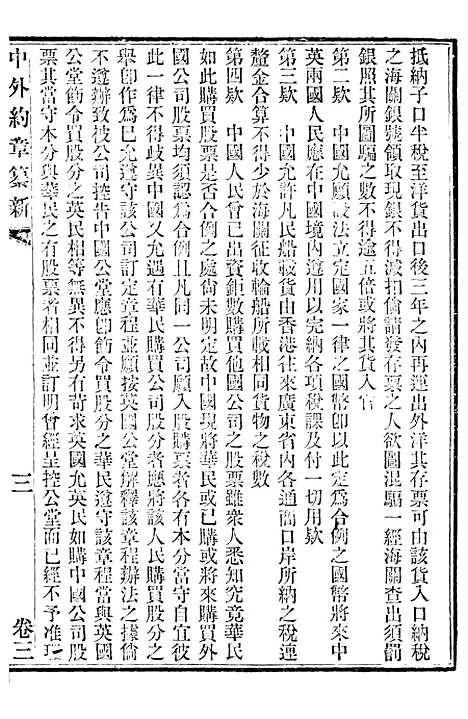 抵納子口半稅至洋貨出口後三年之內再運出外洋其存票可由該貨入口納稅
之海關銀號領取現銀不得減扣倘請發存票之人欲圖混騙一經海關查出須罰
銀照其所圖騙之數不得逾五倍或將其貨入官
第二欵　中國允願設法立定國家一律之國幣卽以此定爲合例之國幣將來中
英兩國人民應在中國境內遵用以完納各項稅課及付一切用欵
第三欵　中國允許凡民船載貨由香港往來廣東省內各通商口岸所納之稅連
釐金合算不得少於海關征收輪船所載相同貨物之稅數
第四欵　中國人民曾已出資鉅數購買他國公司之股票雖衆人悉知究竟華民
如此購買股票是否合例之處尙未明定故中國現將華民或已購或將來購買外
國公司股票均須認爲合例且凡同一公司願入股票者各有本分當守自宜彼
此一律不得歧異中國又允遇有華民購買股分者應將該人民購買股分之
舉卽作爲已允遵守該公司訂定章程並願按英國公堂解釋該章程辦法之據倘
不遵辦致被公司控告中國公堂應卽飭令買股分之華民遵守該章程當與英國
公堂飭令買股分之英民相等無異不得另有苛求英國允英民如購中國公司股
票其當守本分與華民之有股票者相同並訂明曾經呈控公堂而已經不予准理
中外約章纂新
三
卷三